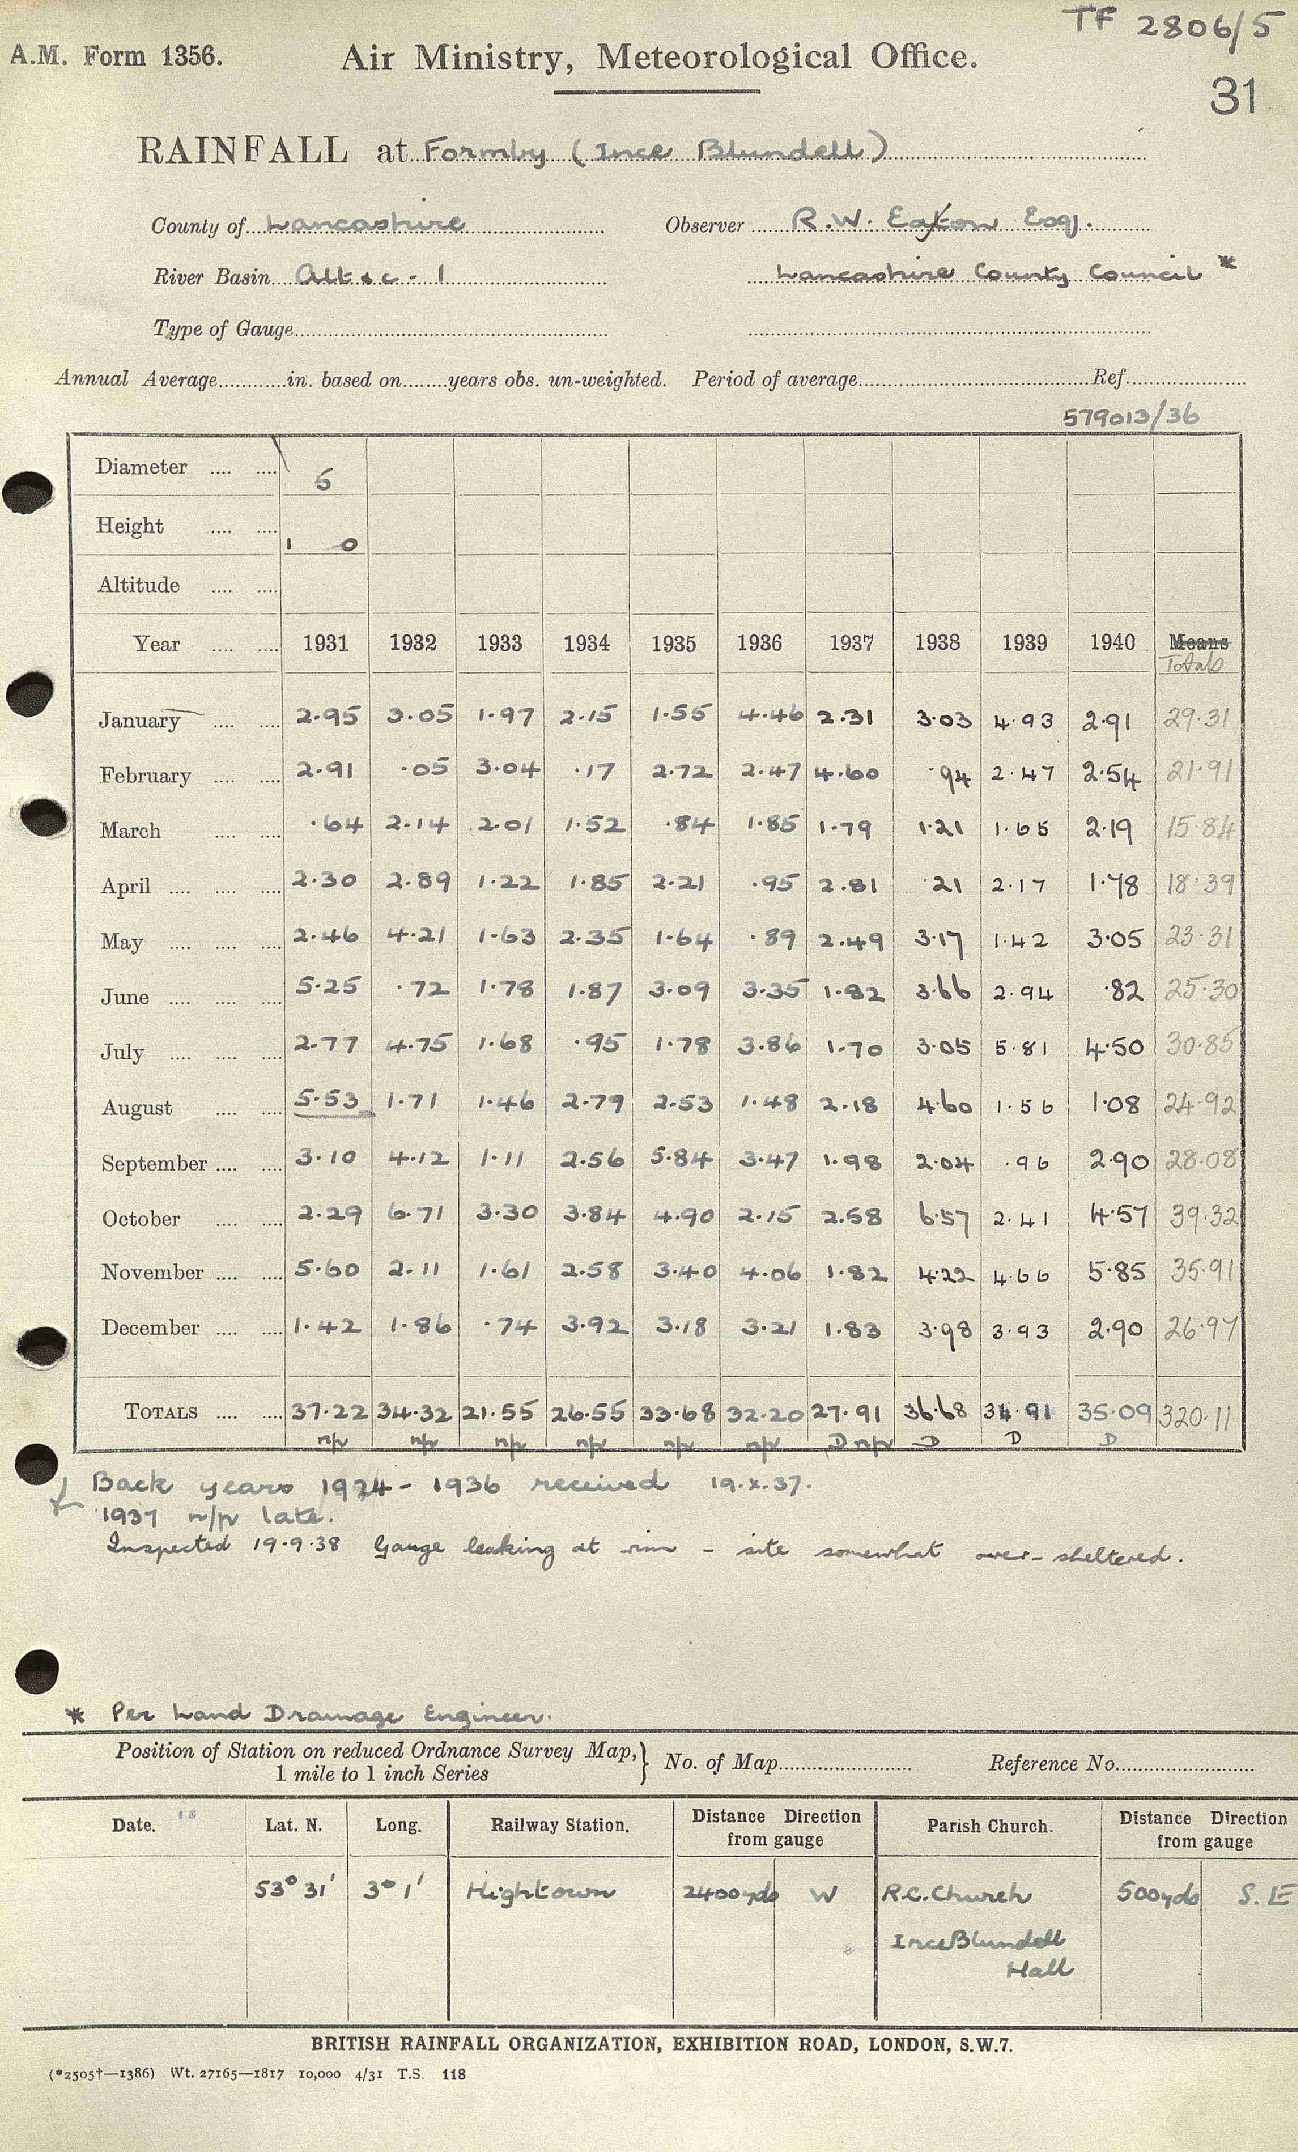 TF 2806/5
A.M. Form 1356.
Air Ministry, Meteorological Office.
31
RAINFALL at Formby (Ince Blundell)
County of Lancashire Observer R.W. Eaton Esq.
River Basin Alt &c - 1 Lancashire County Council *
Type of Gauge
Annual Average in. based on years obs. un-weighted. Period of average Ref.
579013/36
Diameter 5
Height 1 0
Altitude
Year 1931 1932 1933 1934 1935 1936 1937 1938 1939 1940 Means
Totals
January 2.95 3.05 1.97 2.15 1.55 4.46 2.31 3.03 4.93 2.91 29.31
February 2.91 .05 3.04 .17 2.72 2.47 4.60 .94 2.47 2.54 21.91
March .64 2.14 2.01 1.52 .84 1.85 1.79 1.21 1.65 2.19 15.84
April 2.30 2.89 1.22 1.85 2.21 .95 2.81 .21 2.17 1.78 18.39
May 2.46 4.21 1.63 2.35 1.64 .89 2.49 3.17 1.42 3.05 23.31
June 5.25 .72 1.78 1.87 3.09 3.35 1.82 3.66 2.94 .82 25.30
July 2.77 4.75 1.68 .95 1.78 3.86 1.70 3.05 5.81 4.50 30.85
August 5.53 1.71 1.46 2.79 2.53 1.48 2.18 4.60 1.56 1.08 24.92
September 3.10 4.12 1.11 2.56 5.84 3.47 1.98 2.04 .96 2.90 28.08
October 2.29 6.71 3.30 3.84 4.90 2.15 2.58 6.57 2.41 4.57 39.32
November 5.60 2.11 1.61 2.58 3.40 4.06 1.82 4.22 4.66 5.85 35.91
December 1.42 1.86 .74 3.92 3.18 3.21 1.83 3.98 3.93 2.90 26.97
TOTALS 37.22 34.32 21.55 26.55 33.68 32.20 27.91 36.68 34.91 35.09 320.11
n/r n/r n/r n/r n/r n/r D n/r D D D
Back years 1924 - 1936 received 19.x.37.
1937 n/r late.
Inspected 19.9.38 Gauge leaking at rim - site somewhat over-sheltered.
* Per Land Drainage Engineer.
Position of Station on reduced Ordnance Survey Map, 1 mile to 1 inch Series } No. of Map Reference No.
Date. Lat. N. Long. Railway Station. Distance Direction from gauge Parish Church. Distance Direction from gauge
53° 31' 3° 1' Hightown 2400yds W R.C. Church 500yds S.E
Ince Blundell
Hall
BRITISH RAINFALL ORGANIZATION, EXHIBITION ROAD, LONDON, S.W.7.
(*2505†—1386) Wt. 27165—1817 10,000 4/31 T.S. 118